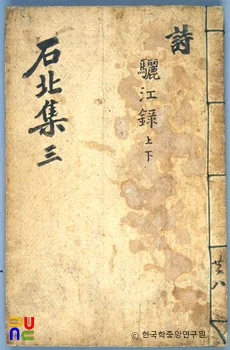 詩
驪江錄 上下
石北集 三
共八
© 한국학중앙연구원